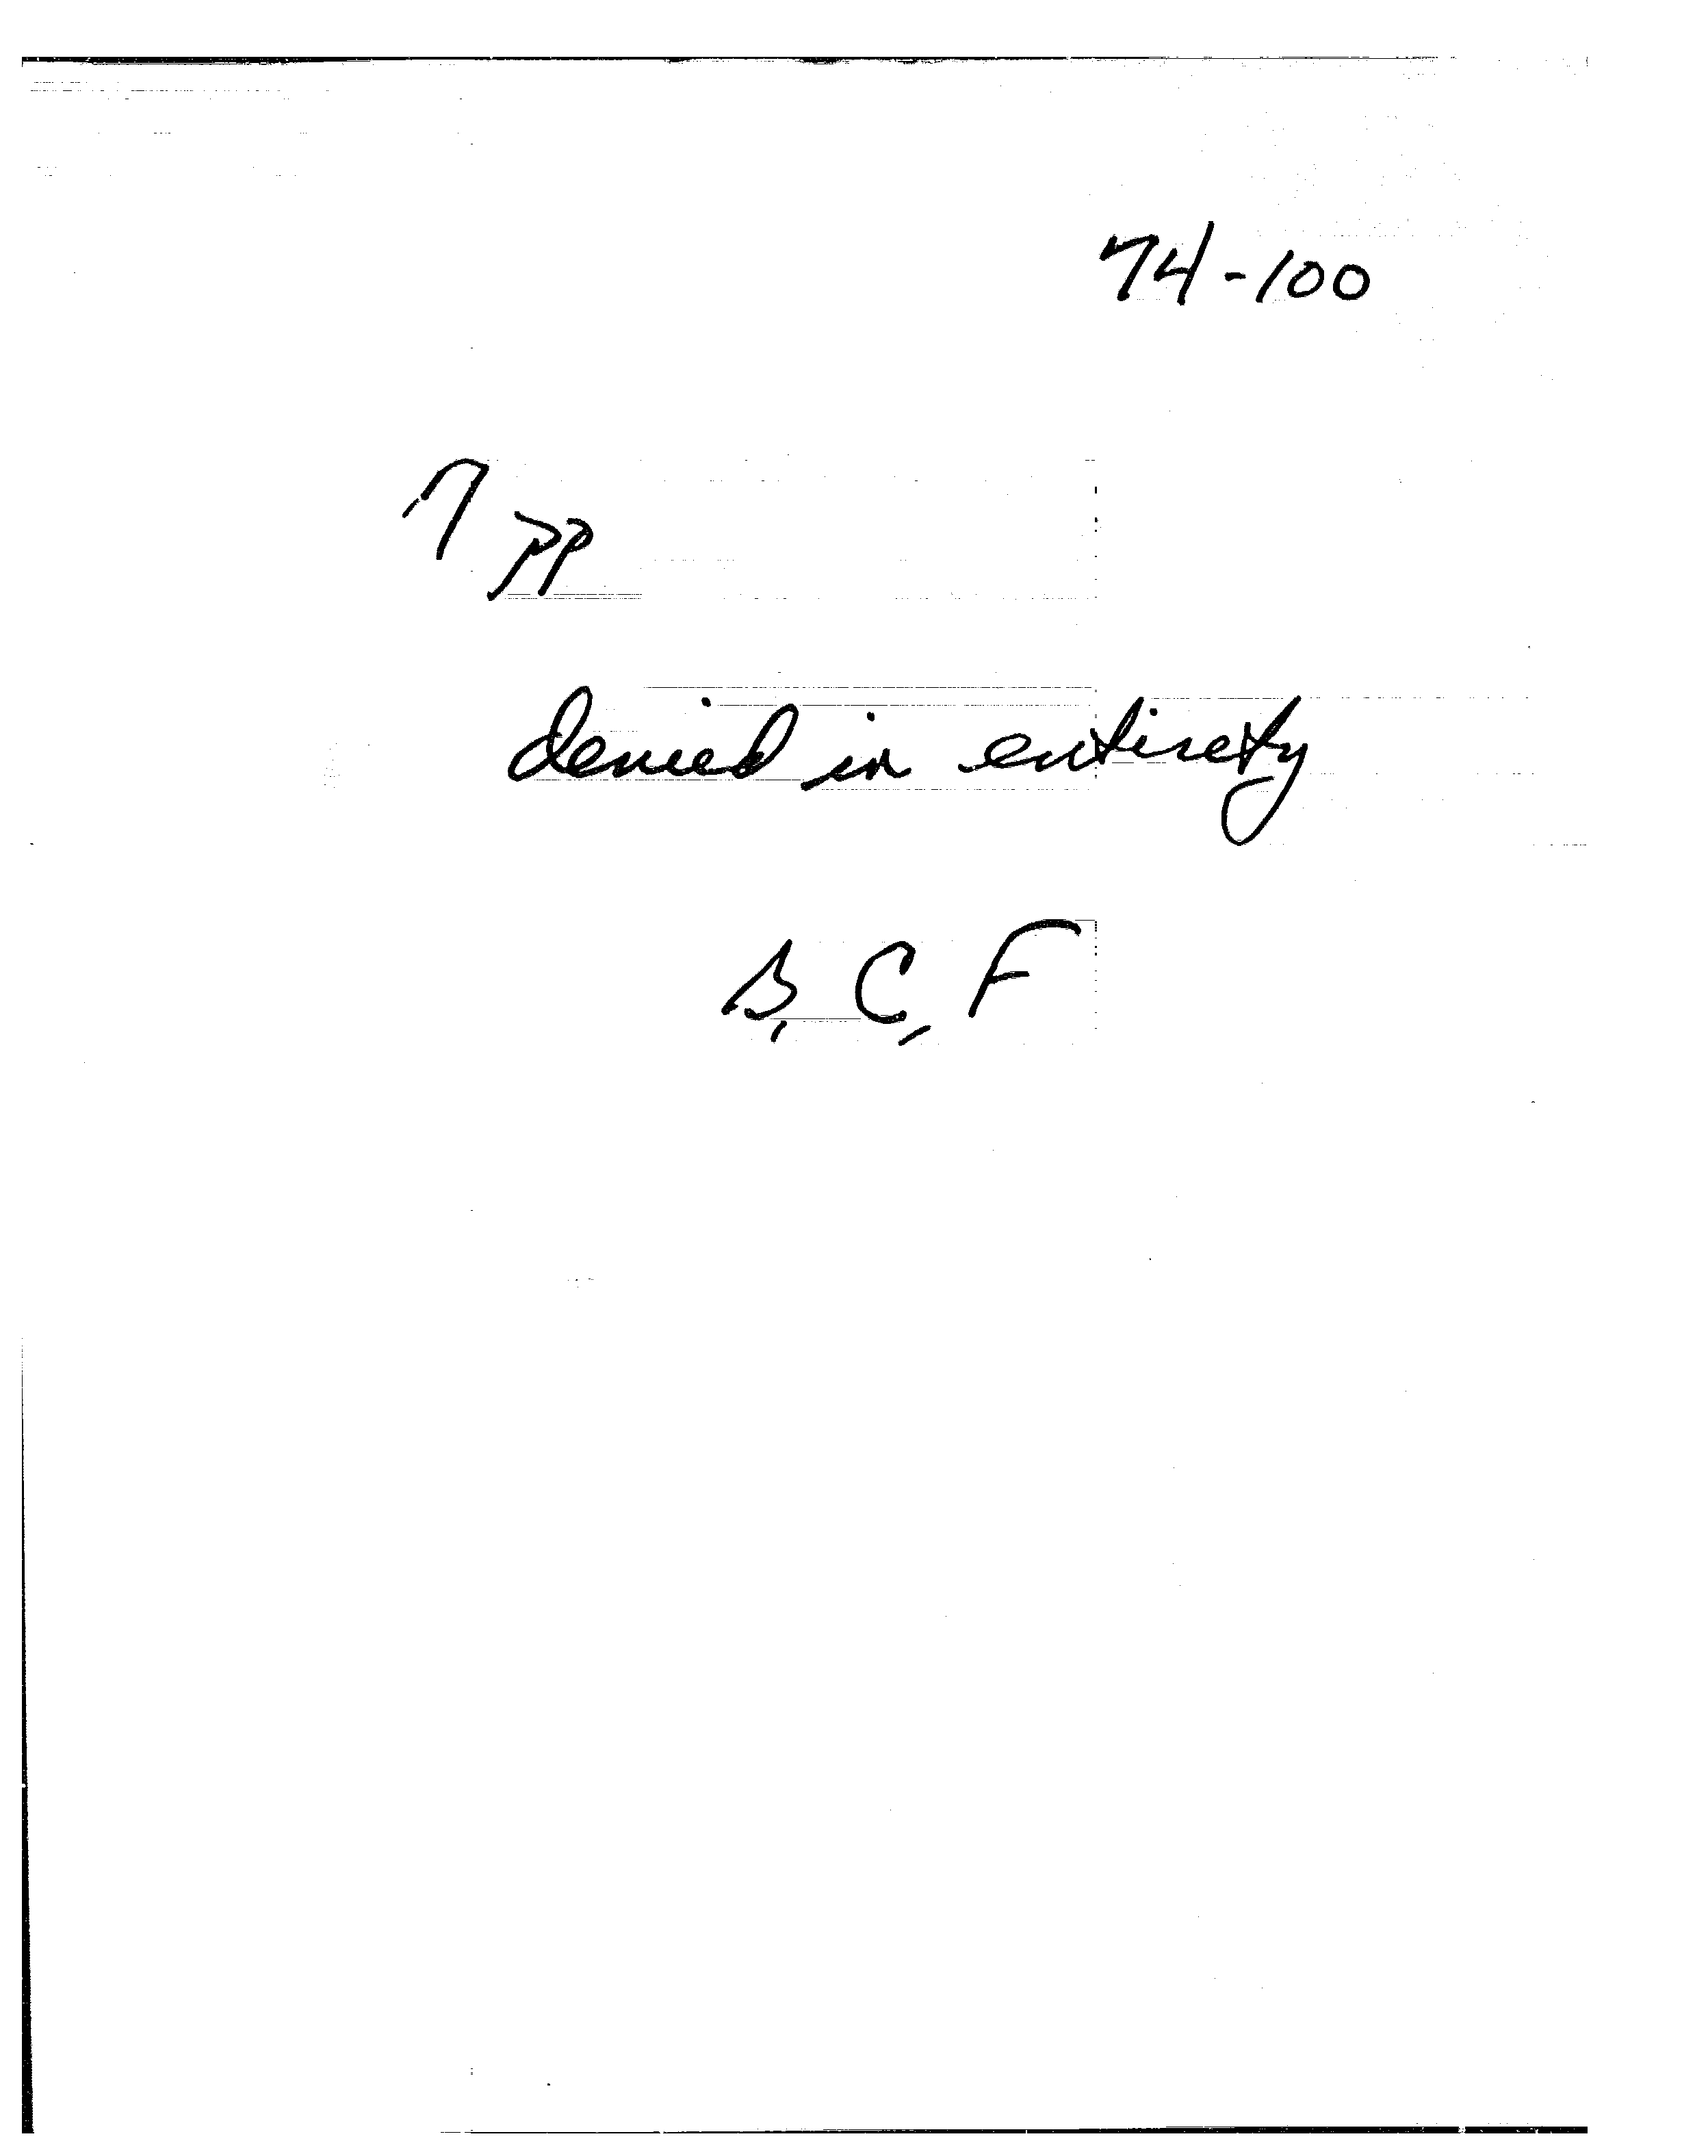 74-100
7 pp
denied in entirety
B, C, F